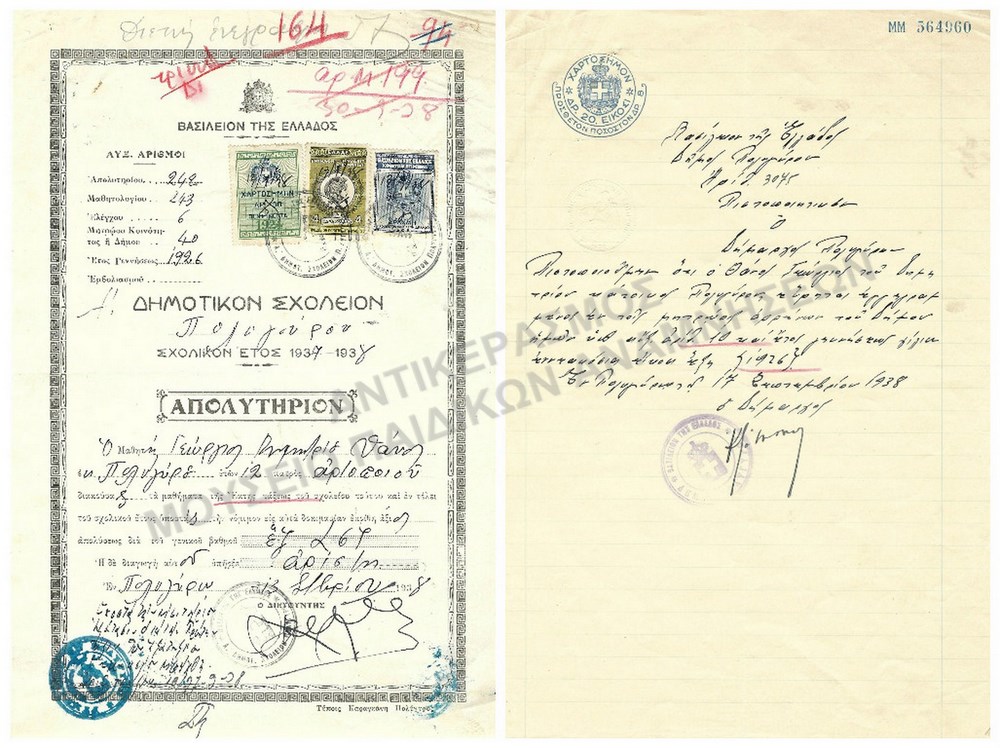 164 94
αρ. Μ 199
30-9-38
ΒΑΣΙΛΕΙΟΝ ΤΗΣ ΕΛΛΑΔΟΣ
ΑΥΞ. ΑΡΙΘΜΟΙ
Ἀπολυτηρίου 242
Μαθητολογίου 243
Ἐλέγχου 6
Μητρῴου Κοινότη-
τος ἢ Δήμου 40
Ἔτος γεννήσεως 1926
Ἐμβολιασμοῦ
ΧΑΡΤΟΣΗΜΟΝ
Α΄. ΔΗΜΟΤΙΚΟΝ ΣΧΟΛΕΙΟΝ
Πολυγύρου
ΣΧΟΛΙΚΟΝ ΕΤΟΣ 1937-1938
ΑΠΟΛΥΤΗΡΙΟΝ
Ὁ Μαθητὴς Γεώργιος Δημητρίου Θάνος
ἐκ Πολυγύρου ἐτῶν 12 πατρὸς ἀρτοποιοῦ
τὰ μαθήματα τῆς Ἕκτης τάξεως τοῦ σχολείου τούτου καὶ ἐν τέλει
τοῦ σχολικοῦ ἔτους ὑποστὰς τὴν νόμιμον εἰς αὐτὰ δοκιμασίαν ἐκρίθη ἄξιος
ἀπολύσεως διὰ τοῦ γενικοῦ βαθμοῦ
Ἡ δὲ διαγωγὴ αὐτοῦ ὑπῆρξε ἀρίστη
Ἐν Πολυγύρῳ 1938
Ο ΔΙΕΥΘΥΝΤΗΣ
Τύποις Καραγκάνη Πολύγυρος
ΜΜ 564960
ΧΑΡΤΟΣΗΜΟΝ
ΔΡ. 20 ΕΙΚΟΣΙ
ΠΡΟΣΘΕΤΟΝ ΠΟΣΟΣΤΟΝ ΔΡ. 8
Βασίλειον τῆς Ἑλλάδος
Δῆμος Πολυγύρου
Ἀριθ. 3075
Πιστοποιητικόν
Ὁ
Δήμαρχος Πολυγύρου
Πιστοποιοῦμεν ὅτι ὁ Θάνος Γεώργιος τοῦ Δημη-
τρίου κάτοικος Πολυγύρου εἶναι ἐγγεγραμ-
μένος ἐν τοῖς μητρώοις ἀρρένων τοῦ Δήμου
ἡμῶν ὑπ' αὔξ. ἀριθ. 40 καὶ ἔτος γεννήσεως χίλια
ἐννεακόσια εἴκοσι ἕξη (1926).
Ἐν Πολυγύρῳ τῇ 17 Σεπτεμβρίου 1938
ὁ Δήμαρχος
ΑΝΤΙΚΕΡΑΣΜΟΣ
ΜΟΥΣΕΙΟ ΠΑΙΔΙΚΩΝ ΑΝΑΜΝΗΣΕΩΝ